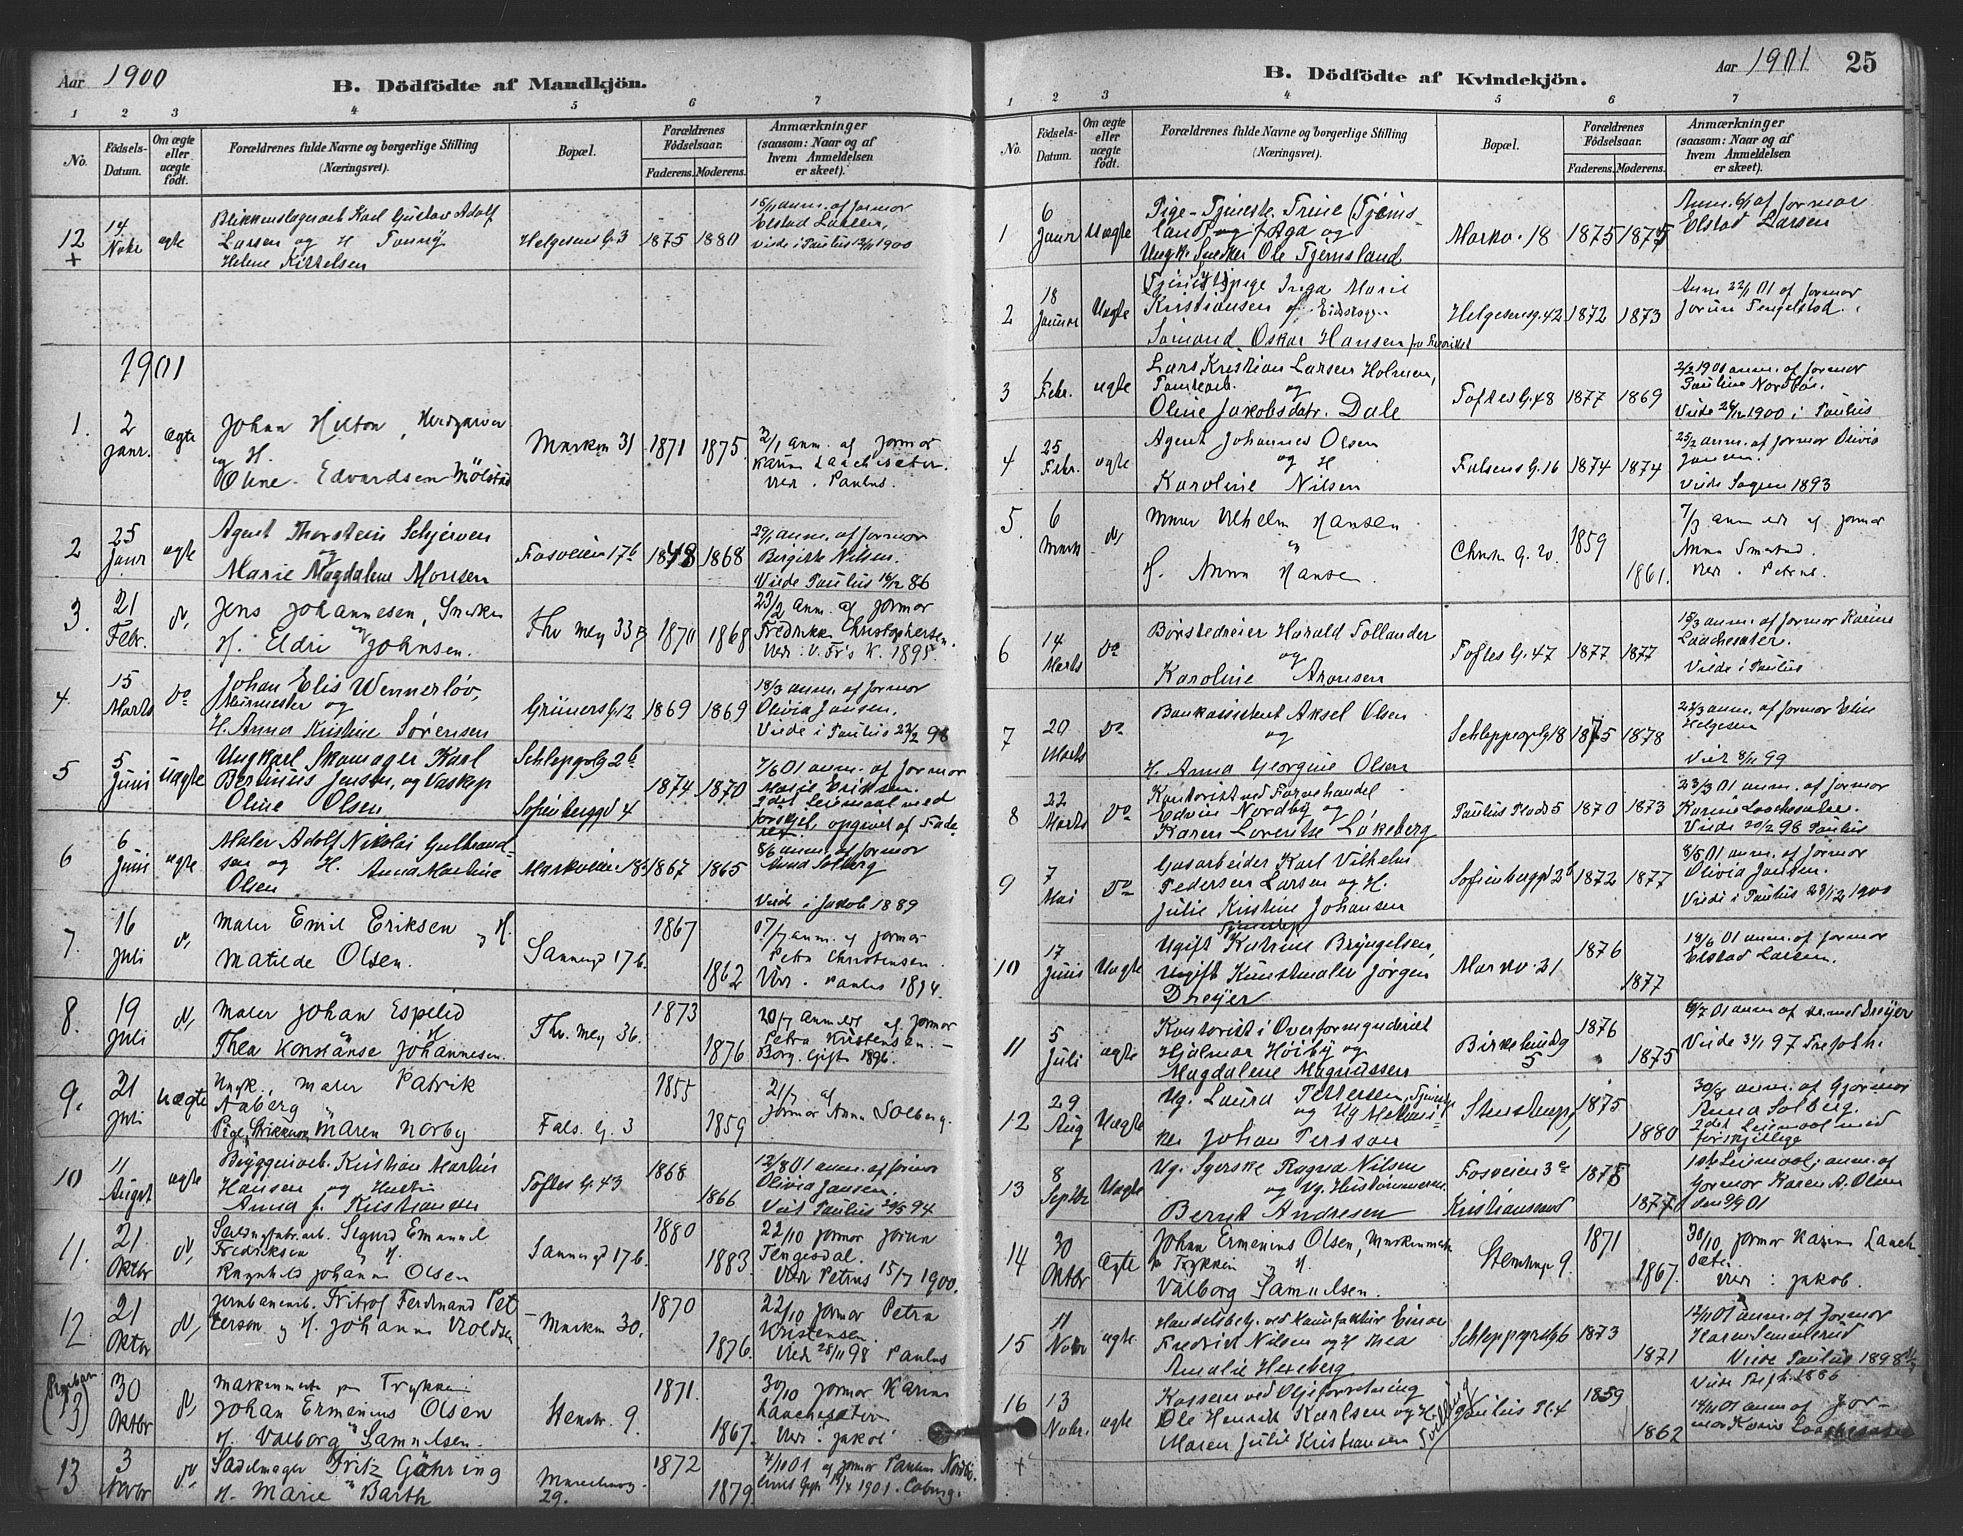 Aar 1900
B. Dödfödte af Mandkjön.
1 2 3 4 5 6 7
No.
Födsels-Datum.
Om ægte eller uægte födt.
Forældrenes fulde Navne og borgerlige Stilling (Næringsvei).
Bopæl.
Forældrenes Födselsaar.
Faderens. Moderens.
Anmærkninger (saasom: Naar og af hvem Anmeldelsen er skeet).
12 + 14 Nvbr ægte
Blikkenslagerarb Karl Gustav Adolf
Larsen og H Fanny
Helene Kittelsen
Helgesens G. 3 1875 1880
15/11 anm. af Jormor
Elstad Larsen,
Viede i Paulus 1900
1901
1. 2 Janr. Ægte
Johan Hilton,
og H.
Oline Edvardsen Mölstad
Markvn 31 1871 1875.
3/1 anm. af Jormor
Karine Laachesæter.
Viede. Paulus.
2 25 Janr ægte
Agent Thorstein Schjerven
og
Marie Magdalene Monsen
Fosveien 17b 1848 1868
29/1 anm. af Jormor
Birgitte Nilsen.
Viede Paulus 19/12 86
3. 21 Febr. do
Jens Johannesen, Snekker
og
H. Eldri Johnsen.
Thv. Mey 33 B 1870 1868
23/2 anm. af Jormor
Fredrikke Christophersen.
Vied: V. Fr's K. 1895.
4 15 Marts do
Johan Elis Wennerlöv,
Murmester og
H. Anna Kristine Sørensen
Grüners G. 12 1869 1869
18/3 anm. af Jormor
Olivia Jansen.
Viede i Paulus 22/2 98
5 5 Juni Uægte
Ungkarl Skomager Karl
Bertinius Jensen, og Vaskep
Oline Olsen
Schleppgrlg 2b
Sofienberggd 4
1874 1870
7/6 01 anm. af Jormor
Marie Eriksen.
2det Leiermaal med
forskjel. opgivet af Fade-
ren
6 6 Juni ægte
Maler Adolf Nikolai Gulbrand-
sen og H. Anna Martine
Olsen
Markveien 18 1867 1865
8/6 anm. af Jormor
Anna Solberg
Viede i Jakob 1889
7. 16 Juli do
Maler Emil Eriksen og H.
Matilde Olsen.
Sannergd 17 b. 1867 1862
17/7 anm. af Jormor
Petra Christensen.
Vied. Paulus 1894.
8. 19 Juli do
Maler Johan Espelid
og H
Thea Konstanse Johannesen.
Thv. Mey 36. 1873 1876
20/7 anm af Jormor
Petra Kristensen. —
Borg. Gift 1896.
9. 21 Juli Uægte
Ungk. Maler Patrik
Aaberg
og
Pige, Maren Norby
Fals. G. 3 1855 1859
21/7 af
Jormor Anna Solberg.
10 11 Augst ægte
Bryggeriarb. Kristian Martin
Hansen og Hustru
Anna f. Kristiansen
Toftes G. 43 1868 1866
12/8 01 anm. af Jormor
Olivia Jansen.
Viet Paulus 20/5 94
11. 21 Oktbr do
Sigurd Emanuel
Fredriksen og H.
Ragnhild Johanne Olsen
Sannergd 17 b. 1880 1883.
22/10 Jormor Jorun
Tengesdal.
Vied Petrus 15/7 1900.
12. 21 Oktbr do
Jernbanearb. Fritjof Ferdinand Pet
terson og H. Johanne Voldsen
Markvn 30. 1870 1876.
22/10 Jormor Petra
Kristensen.
Vied 28/11 98 Paulus
(13) 30 Oktbr do
Maskinmester paa Trykkeri
Johan Ermenius Olsen
og
H. Valborg Samuelsen.
Stenstr. 9. 1871. 1867.
30/10 Jormor Karine
Laachesæter
Vied: Jakob
13 3 Novbr do
Sadelmager Fritz Göhring
og
H. Marie Barth
29. 1872 1879.
4/11 01 af Jormor Pauline Nordbö
1901. Coburg.
Aar 1901 25
B. Dödfödte af Kvindekjön.
1 2 3 4 5 6 7
No.
Födsels-Datum.
Om ægte eller uægte födt.
Forældrenes fulde Navne og borgerlige Stilling (Næringsvei).
Bopæl.
Forældrenes Födselsaar.
Faderens. Moderens.
Anmærkninger (saasom: Naar og af hvem Anmeldelsen er skeet).
1 6 Janr Uægte
Pige-Tjeneste. Trine (Tjems-
land) og
Ungk. Snekker Ole Tjemsland
Markv. 18 1875 1875
Anm. 6/1 af Jormor
Elstad Larsen
2 18 Januar Uægte
Tjenestepige Inga Marie
Kristiansen af Eidskogen
Sømand Oskar Hansen fra Fredrikst
Helgesensg. 42 1872 1873
Anm 22/1 01 af Jormor
Jorun Tengesdal.
3 1 Febr. ægte
Lars Kristian Larsen Holmen,
og
Oline Jakobsdatr. Dale
Toftes G. 48 1877 1869
2/2 1901 anm. af Jormor
Pauline Nordbö.
Viede 26/12 1900 i Paulus
4 25 Febr. ægte
Agent Johannes Olsen
og H
Karoline Nilsen
Falsens G. 16 1874 1874
25/2 anm. af Jormor Olivia
Jansen.
Viede Sagene 1893
5. 6 Marts do
Murer Vilhelm Hansen
og
H. Anna Hansen.
Chrstn G. 20. 1859 1861.
7/3 anm af Jormor
Anna Smstad.
Vied. Petrus.
6 14 Marts do
Børstedreier Harald Tollander
og
Karoline Aronsen
Toftes G. 47 1877 1877
15/3 anm. af Jormor Karine
Laachesæter.
Viede i Paulus
7 20 Marts do
Bankassistent Aksel Olsen
og
H. Anna Georgine Olsen
Schleppegrlg 18 1875 1878
22/3 anm. af Jormor Elise
Helgesen
Viet 8/11 99
8 22 Marts do
Kontorist ved Farvehandel
Edvin Nordby og
Karen Lorentse Løkeberg
Paulus Plads 5 1870 1873
23/3 01 anm. af Jormor
Karine Laachesæter.
Viede 20/2 98 Paulus
9 7 Mai do
Gasarbeider Karl Vilhelm
Pedersen Larsen og H.
Julie Kristine Johansen
Sofienberggd 26 1872 1877
8/5 01 anm. af Jormor
Olivia Jansen.
Viede i Paulus 1900
10 17 Juni Uægte
Tjenestep
Ugift Katrine Bryngelsen,
Ugift Kunstmaler Jørgen
Dreyer
Markv. 21 1876 1877
18/6 01 anm. af Jormor
Elstad Larsen.
11 5 Juli ægte
Kontorist i Overformynderiet
Hjalmar Höiby og
Magdalene Magnussen
Birkelundg 5 1876 1875
6/7 01 anm af Jormor Dreijer
Viede 31/1 97 Trefoldh.
12 29 Aug Uægte
Ug. Laura Pettersen, Tjenestp
og Ug Mekani-
ker Johan Persson
Stenstrupsg 1 1875 1880
30/8 anm. af Gjormor
Anna Solberg.
2det Leiermaal med
forskjellige
13 8 Septbr Uægte
Ug. Syerske Ragna Nilsen
og Ug.
Bernt Andresen
Fosveien 3a
Kristianssund
1875 1877
1ste Leiermaal; anm. af
Gormor Karen A. Olsen
den 9/9 01
14 30 Oktbr Ægte
Johan Ermenius Olsen, Maskinmester
p. Trykkeri og H
Valborg Samuelsen.
Stenstrup 9. 1871 1867.
30/10 Jormor Karine Laache-
sæter
Vied: Jakob.
15 11 Novbr ægte
Handelsbetj. ved Manufaktur Einar
Fredrik Nilsen og H Thea
Amalie Herseberg
Schleppegrlg 6 1873 1871
12/11 01 anm. af Jormor
Karen Semmerud
Viede Paulus 1898
16 + 13 Novbr. ægte
Kasserer ved Oljeforretning
Ole Henrik Karlsen og H.
Maren Julie Kristiansen
Paulus Pl. 4 1859 1862
Viede 1886
14/11 01 anm af Jor-
mor Karine Laachesæter